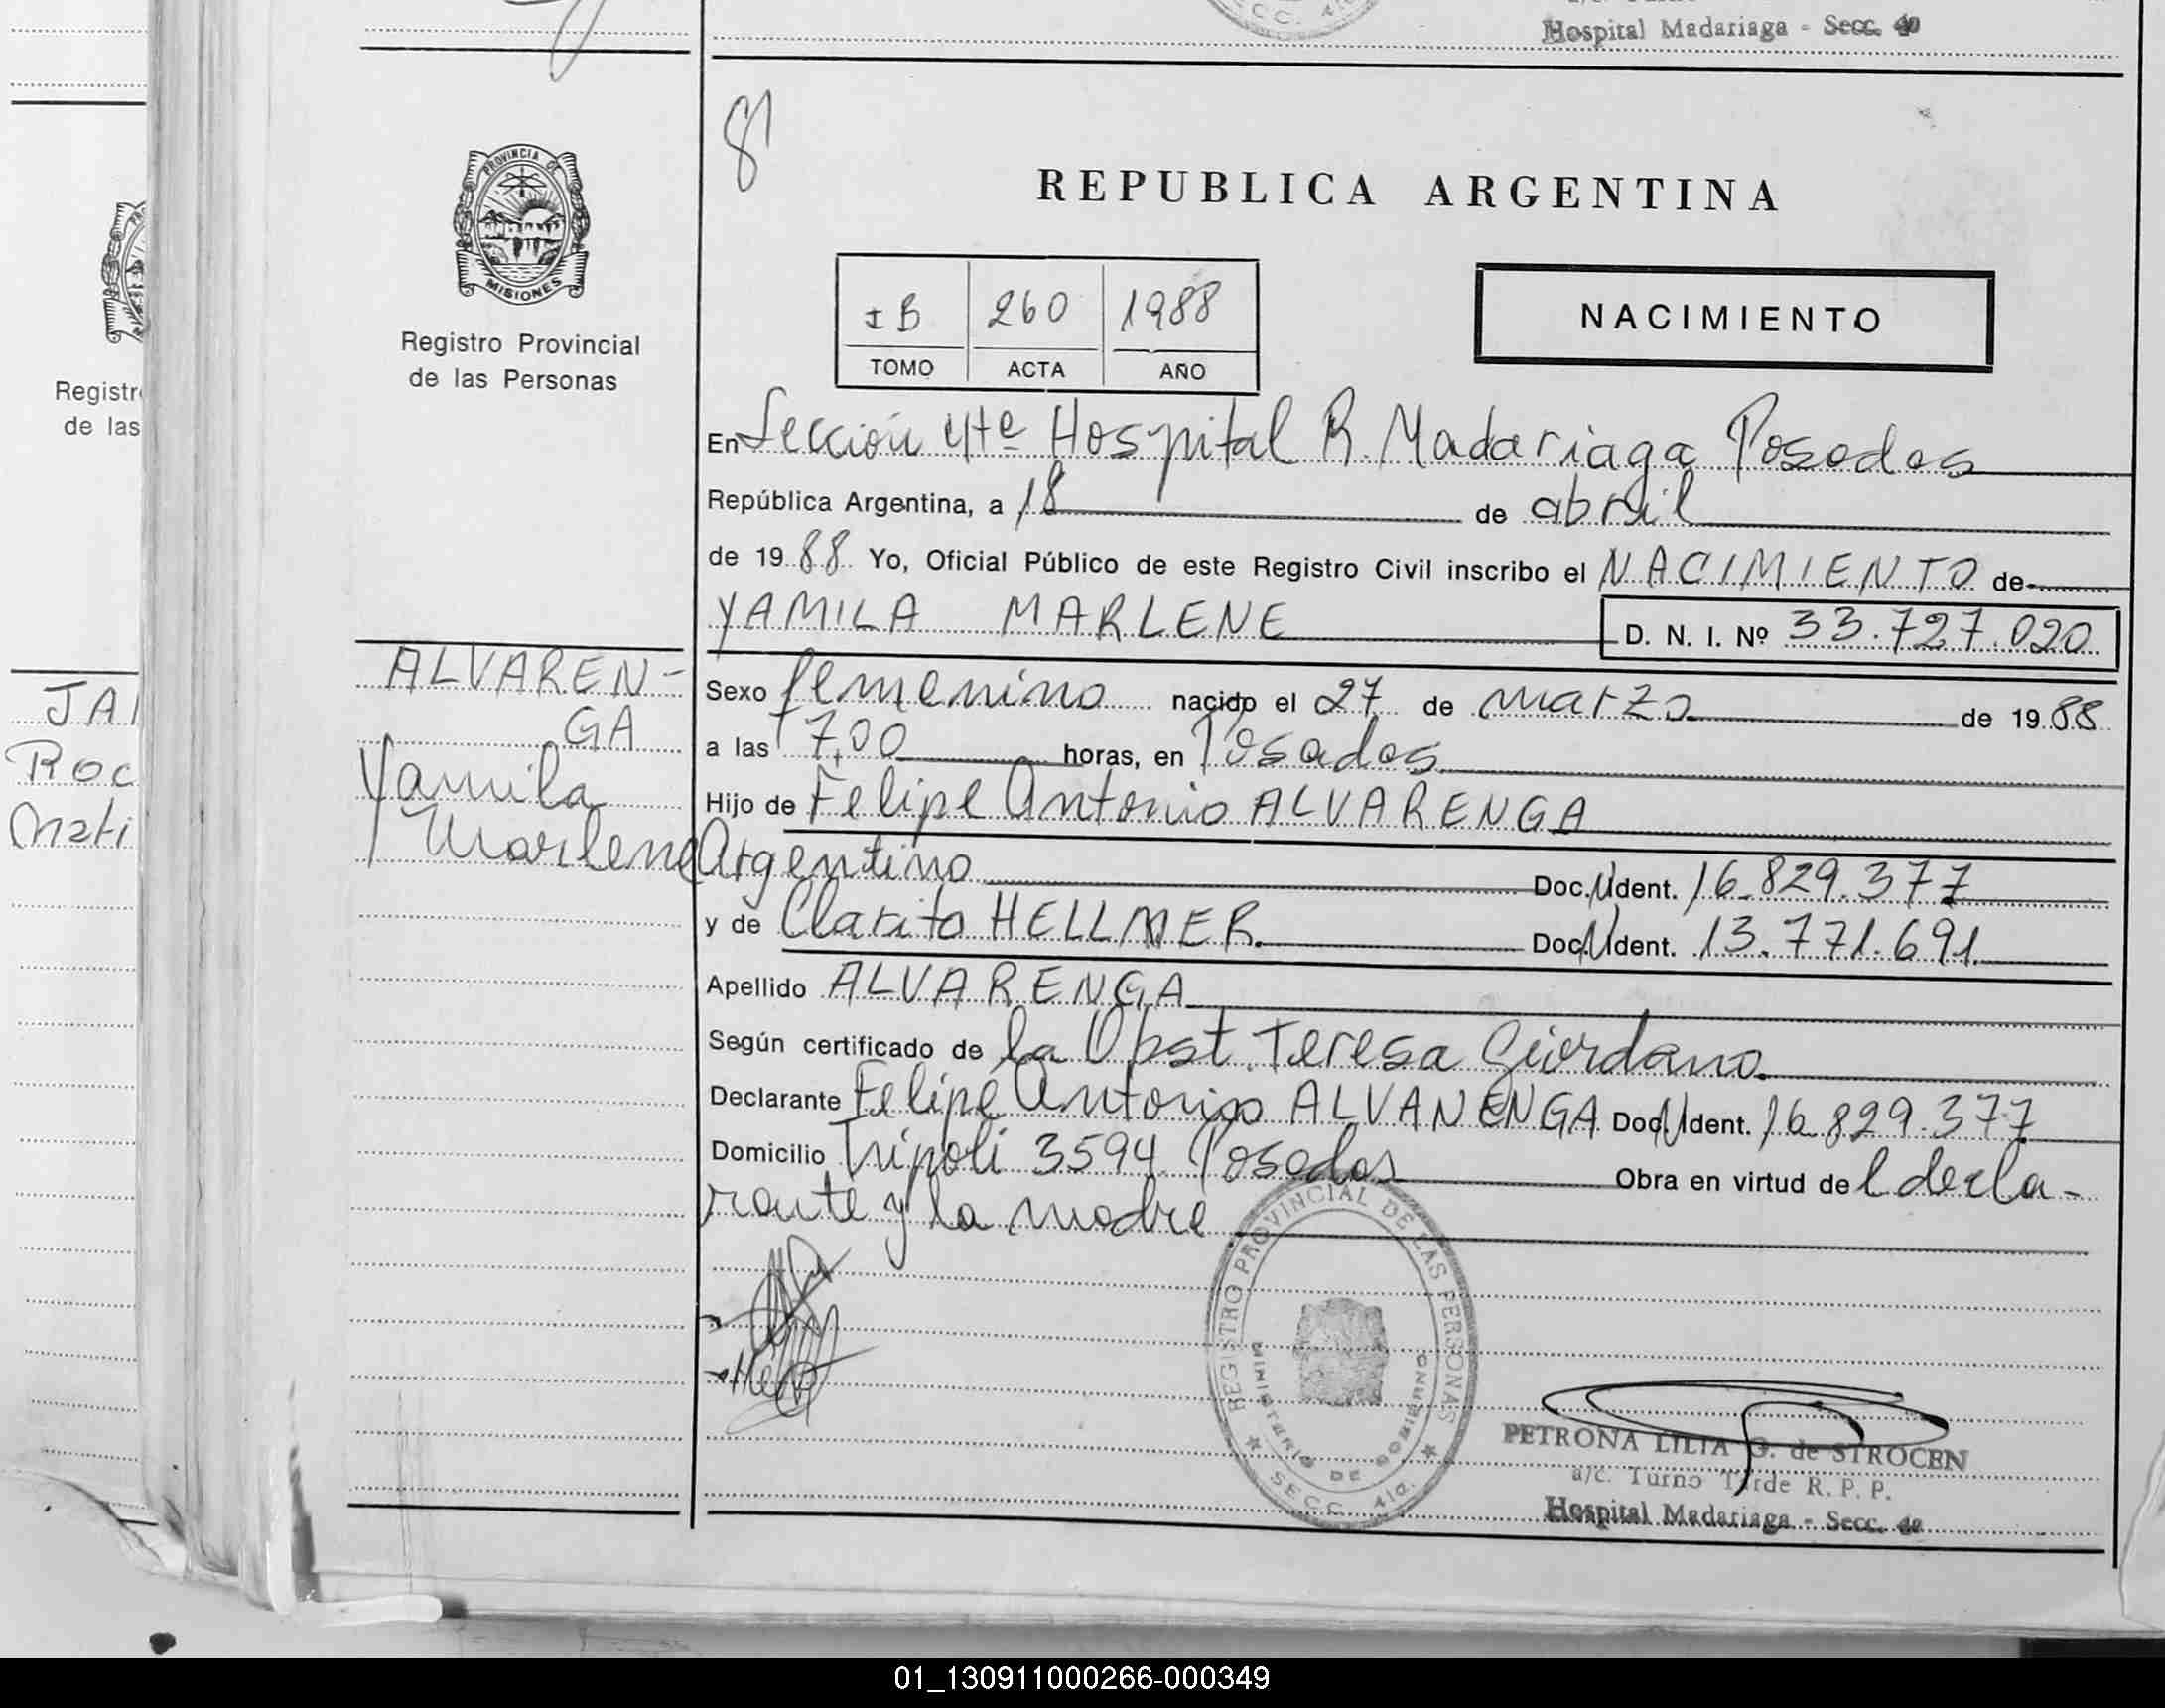 Hospital Madariaga - Secc. 4a
8
PROVINCIA DE
MISIONES
Registro Provincial
de las Personas
REPUBLICA ARGENTINA
I B 260 1988
TOMO ACTA AÑO
NACIMIENTO
En Sección 4ta Hospital R. Madariaga Posadas
República Argentina, a 18 de abril
de 1988 Yo, Oficial Público de este Registro Civil inscribo el NACIMIENTO de
YAMILA MARLENE D. N. I. Nº 33.727.020
Sexo femenino nacido el 27 de marzo de 1988
a las 7,00 horas, en Posadas
Hijo de Felipe Antonio ALVARENGA
Argentino Doc. Ident. 16.829.377
y de Clarita HELLMER Doc. Ident. 13.771.691
Apellido ALVARENGA
Según certificado de la Obst. Teresa Giordano
Declarante Felipe Antonio ALVANENGA Doc. Ident. 16.829.377
Domicilio Tripoli 3594 Posadas Obra en virtud del decla-
rante y la madre
ALVAREN-
GA
Yamila
Marlene
REGISTRO PROVINCIAL DE LAS PERSONAS
MINISTERIO DE GOBIERNO
SECC. 4ta.
PETRONA LILIA G. de STROCEN
a/c. Turno Tarde R. P. P.
Hospital Madariaga - Secc. 4a
Registr
de las
JA
Roc
Mati
01_130911000266-000349